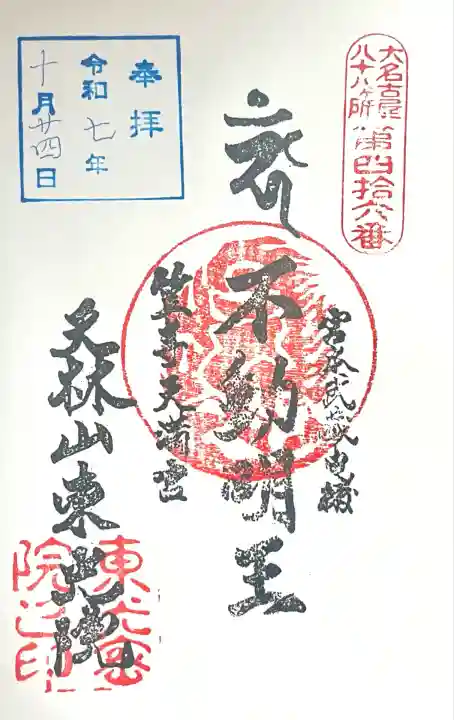 大名古屋
八十八ヶ所
第四拾六番
奉拝
令和七年
十月廿四日
不動明王
笠寺天満宮
天林山東光院
東光密
院之印